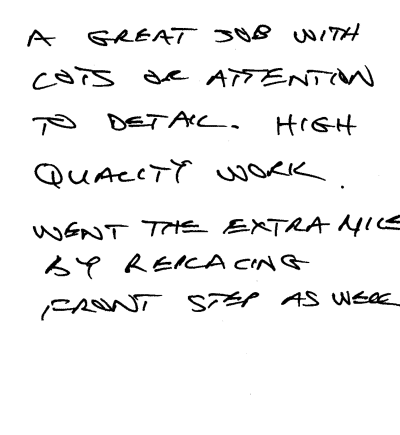 A GREAT JOB WITH
LOTS OF ATTENTION
TO DETAIL. HIGH
QUALITY WORK.
WENT THE EXTRA MILE
BY REPLACING
FRONT STEP AS WELL